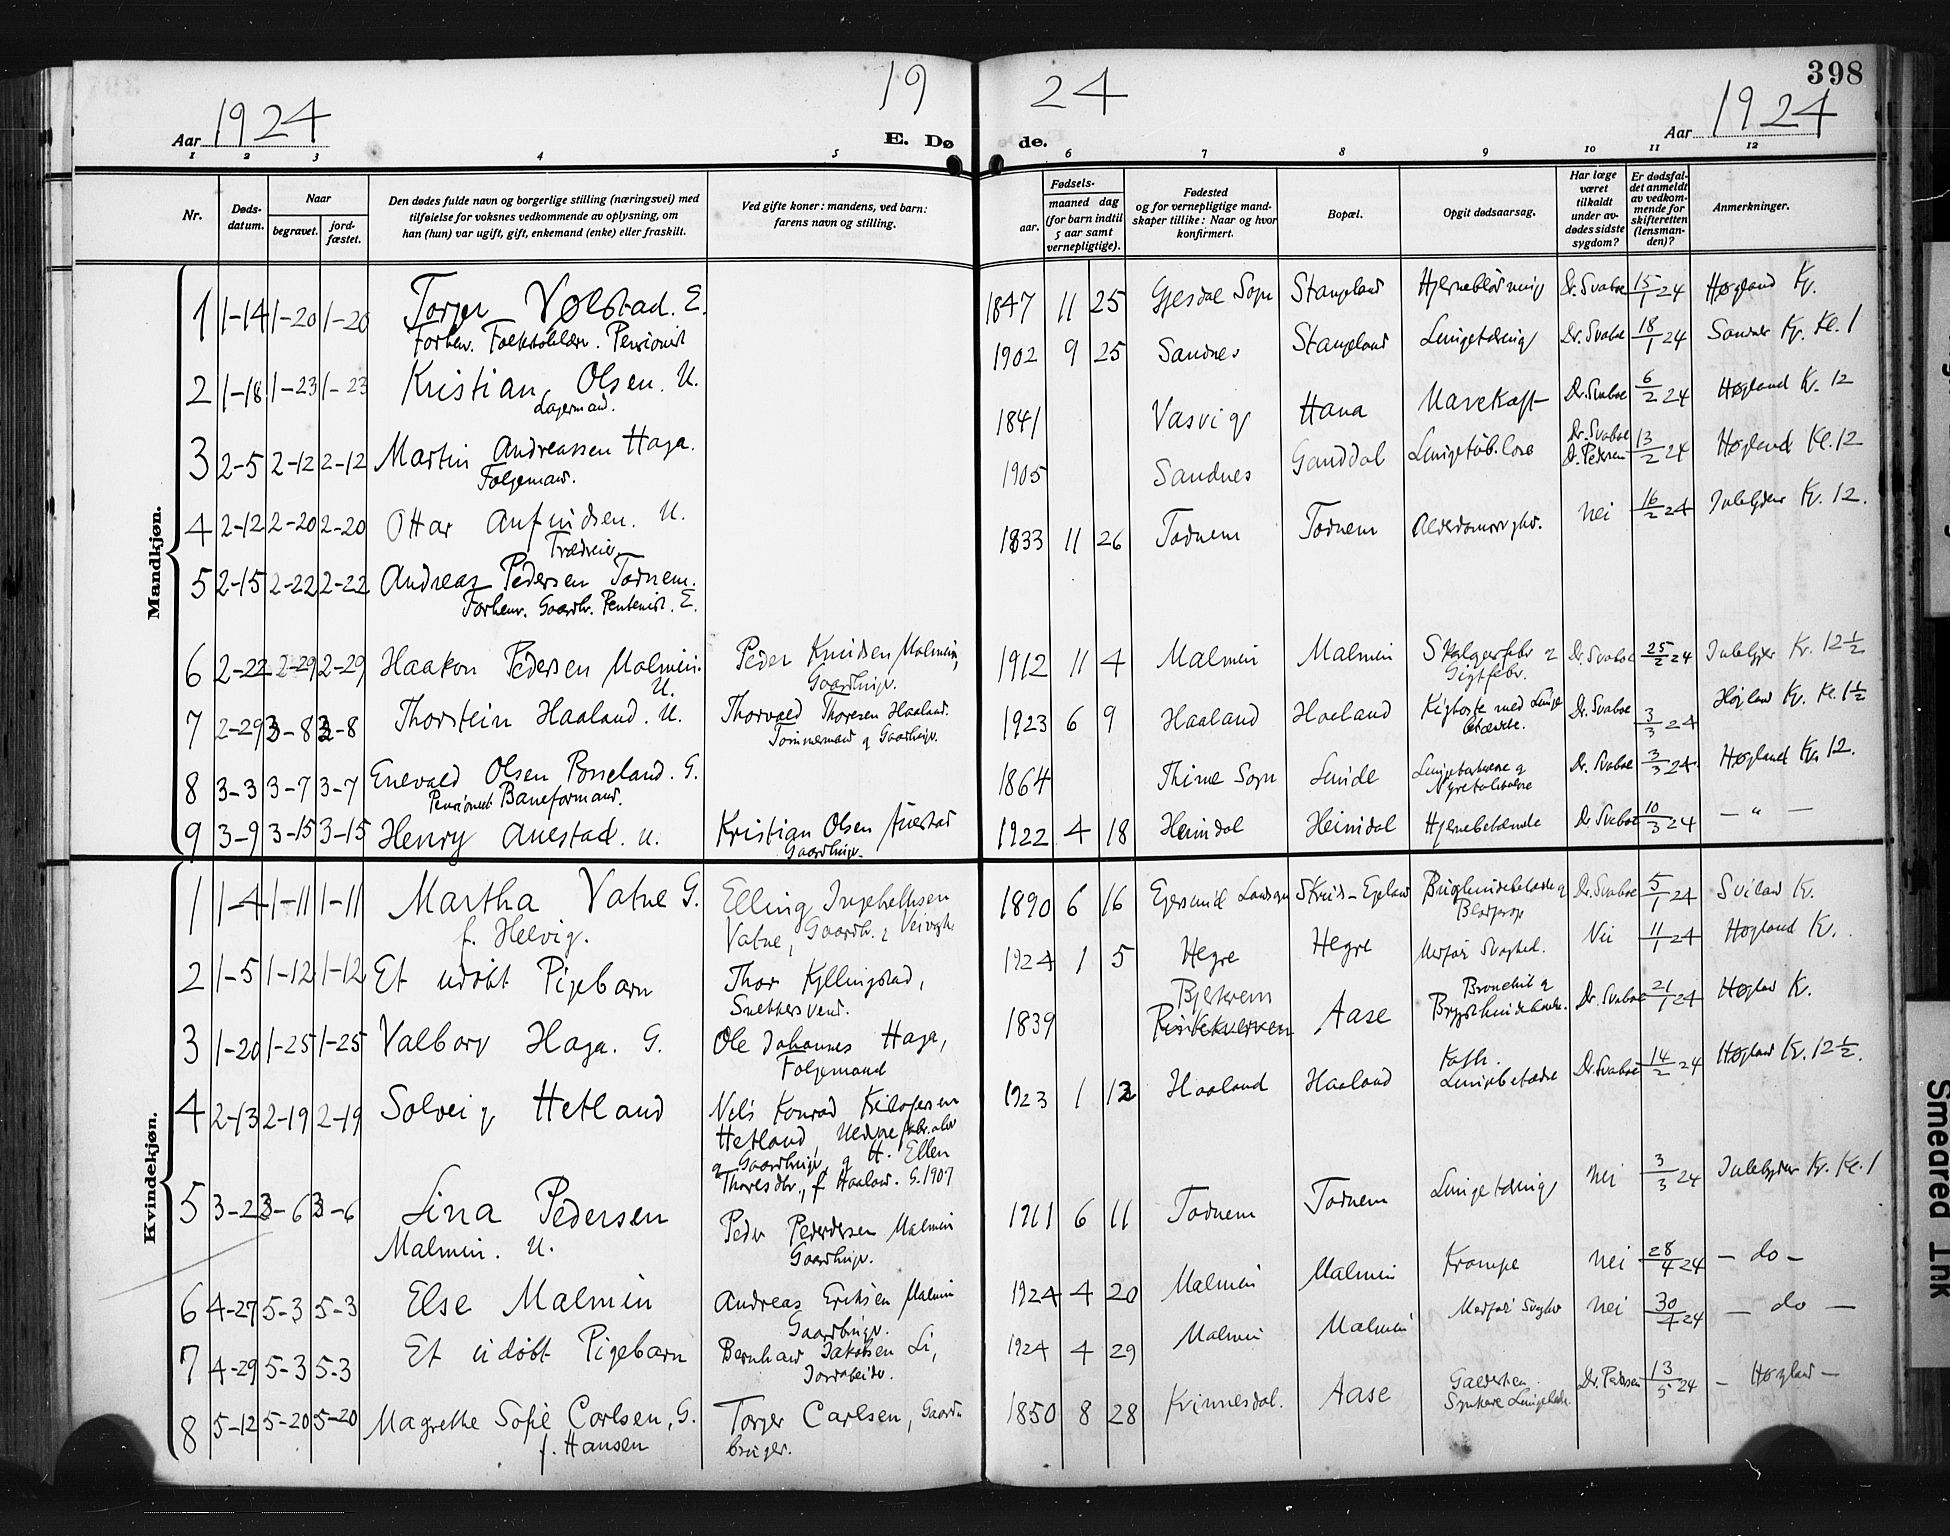 19 24
398
Aar 1924
E. Dø de.
Aar 1924
1 2 3 4 5 6 7 8 9 10 11 12
Nr.
Døds-datum.
Naar
begravet.
jord-fæstet.
Den dødes fulde navn og borgerlige stilling (næringsvei) med
tilføielse for voksnes vedkommende av oplysning, om
han (hun) var ugift, gift, enkemand (enke) eller fraskilt.
Ved gifte koner: mandens, ved barn:
farens navn og stilling.
Fødsels-
aar.
maaned dag
(for barn indtil
5 aar samt
vernepligtige).
Fødested
og for vernepligtige mand-
skaper tillike: Naar og hvor
konfirmert.
Bopæl.
Opgit dødsaarsag.
Har læge
været
tilkaldt
under av-
dødes sidste
sygdom?
Er dødsfal-
det anmeldt
av vedkom-
mende for
skifteretten
(lensman-
den)?
Anmerkninger.
Mandkjøn.
1 1-14 1-20 1-20 Torger Vølstad. E. 1847 11 25 Gjesdal Sogn Stangeland Hjerneblødning Dr. Svaboe 15/1 24 Høgland Kr.
Forhenv. Folkeskolelær. Pensionist
2 1-18 1-23 1-23 Kristian Olsen. U. 1902 9 25 Sandnes Stangeland Lungetæring Dr. Svaboe 18/1 24 Sandnes Kr. Kl. 1
Lagermand.
3 2-5 2-12 2-12 Martin Andreassen Haga. 1841 Vasvig Hana Mavekræft Dr. Svaboe 6/2 24 Høgland Kr. 12
Følgemand.
4 2-12 2-20 2-20 Ottar Aufindsen. U. 1905 Sandnes Ganddal Dr. Svaboe Dr. Pedersen 13/2 24 Høgland Kl. 12
5 2-15 2-22 2-22 Andreas Pedersen Tødnem. 1833 11 26 Tødnem Tødnem Nei 16/2 24 Kr. 12.
Forhenv. Gaardbr. E.
6 2-22 2-29 2-29 Haakon Pedersen Malmin. U. Peder Knudsen Malmin, Gaardbruger. 1912 11 4 Malmin Malmin Gigtfebr. Dr. Svaboe 25/2 24 Kr. 12 1/2
7 2-29 3-8 3-8 Thorstein Haaland. U. Thorvald Thoresen Haaland. Tømmermand og Gaardbruger. 1923 6 9 Haaland Haaland Kighoste med Lungebetændelse. Dr. Svaboe 3/3 24 Høgland Kr. Kl. 1 1/2
8 3-3 3-7 3-7 Enevald Olsen Posseland. G. 1864 Thime Sogn Lunde Dr. Svaboe 3/3 24 Høgland Kr. 12.
Pensionert Baneformand.
9 3-9 3-15 3-15 Henry Auestad. U. Kristian Olsen Auestad Gaardbruger. 1922 4 18 Heimdal Heimdal Hjernebetændelse Dr. Svaboe 10/3 24 — " —
Kvindekjøn.
1 1-4 1-11 1-11 Martha Vatne G. f. Helvig. Elling Ingebretsen Vatne, Gaardbr. & 1890 6 16 Egersund Landsogn Skeid-Egeland Brysthindebetændelse og Blodprop Dr. Svaboe 5/1 24 Sviland Kr.
2 1-5 1-12 1-12 Et udøbt Pigebarn Thor Kyllingstad, Snekkersvend. 1924 1 5 Hegre Hegre Medfødt Svaghed. Nei 11/1 24 Høgland Kr.
3 1-20 1-25 1-25 Valborg Haga. G. Ole Johannes Haga, Følgemand 1839 Bjerkreim Aase Bronchit og Brysthindebetænd. Dr. Svaboe 21/1 24 Høgland Kr.
4 2-13 2-19 2-19 Solveig Hetland Nels Konrad Hetland, og Gaardbruger, og H. Ellen Thoresdtr., f. Haaland. G. 1907 1923 1 12 Haaland Haaland Lungebetændelse Dr. Svaboe 14/2 24 Høgland Kr. 12 1/2.
5 3-2 3-6 3-6 Lina Pedersen Malmin. U. Peder Pedersen Malmin Gaardbruger. 1911 6 11 Tødnem Tødnem Lungetæring Nei 3/3 24 Kr. Kl. 1
6 4-27 5-3 5-3 Else Malmin Andreas Eriksen Malmin Gaardbruger. 1924 4 20 Malmin Malmin Krampe Nei 28/4 24 — do —
7 4-29 5-3 5-3 Et udøbt Pigebarn Bernhard Jakobsen Li, Jordarbeider. 1924 4 29 Malmin Malmin Medfødt Svaghed Nei 30/4 24 — do —
8 5-12 5-20 5-20 Magrethe Sofie Carlsen, G. f. Hansen Torger Carlsen, Gaardbruger. 1850 8 28 Kvinnesdal. Aase Dr. Pedersen 13/5 24 — Høgland —
Smeared Ink